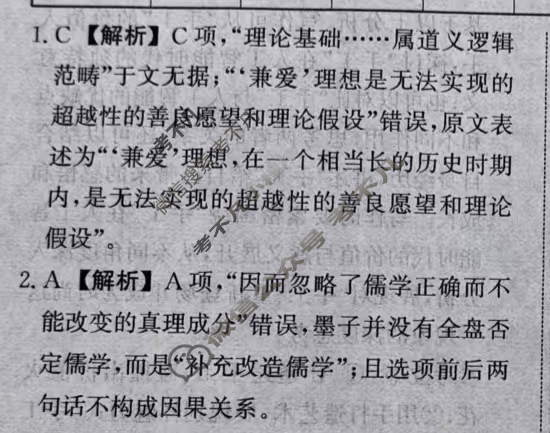 1. C 【解析】C 项，“理论基础……属道义逻辑
范畴”于文无据；“‘兼爱’理想是无法实现的
超越性的善良愿望和理论假设”错误，原文表
述为“‘兼爱’理想，在一个相当长的历史时期
内，是无法实现的超越性的善良愿望和理论
假设”。
2. A 【解析】A 项，“因而忽略了儒学正确而不
能改变的真理成分”错误，墨子并没有全盘否
定儒学，而是“补充改造儒学”；且选项前后两
句话不构成因果关系。